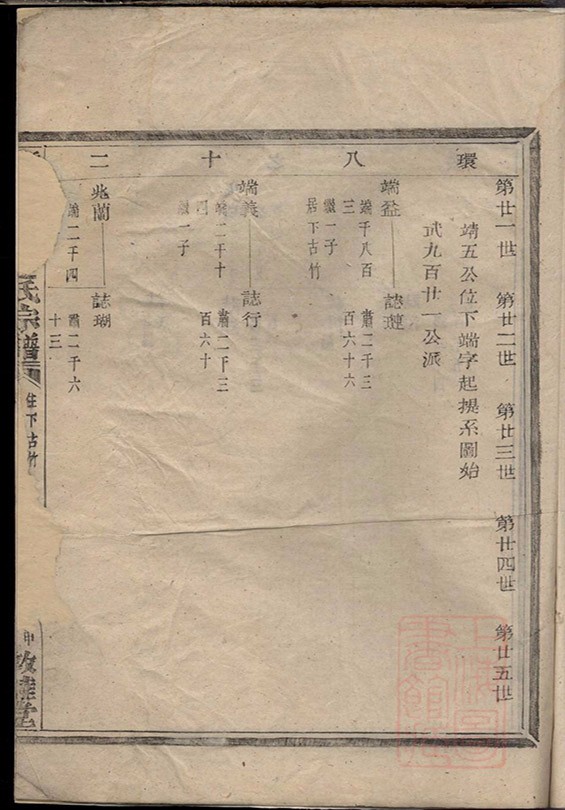 第廿一世 第廿二世 第廿三世 第廿四世 第廿五世
環
靖五公位下端字起提系圖始
貳九百廿一公派
八
端盉 誌璉
端千八百 肅二千三
三 百六十六
繼一子
居下古竹
十
端義 誌行
端二千十 肅二千三
四 百六十
繼一子
二
兆蘭 誌瑚
端二千四 肅二千六
十三
氏宗譜
住下古竹
敦睦堂